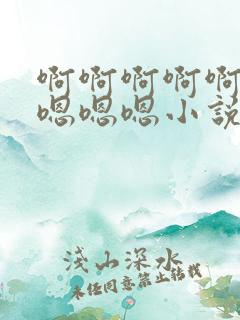 啊啊啊啊啊
嗯嗯嗯小说
浅山深水
未经同意禁止转载